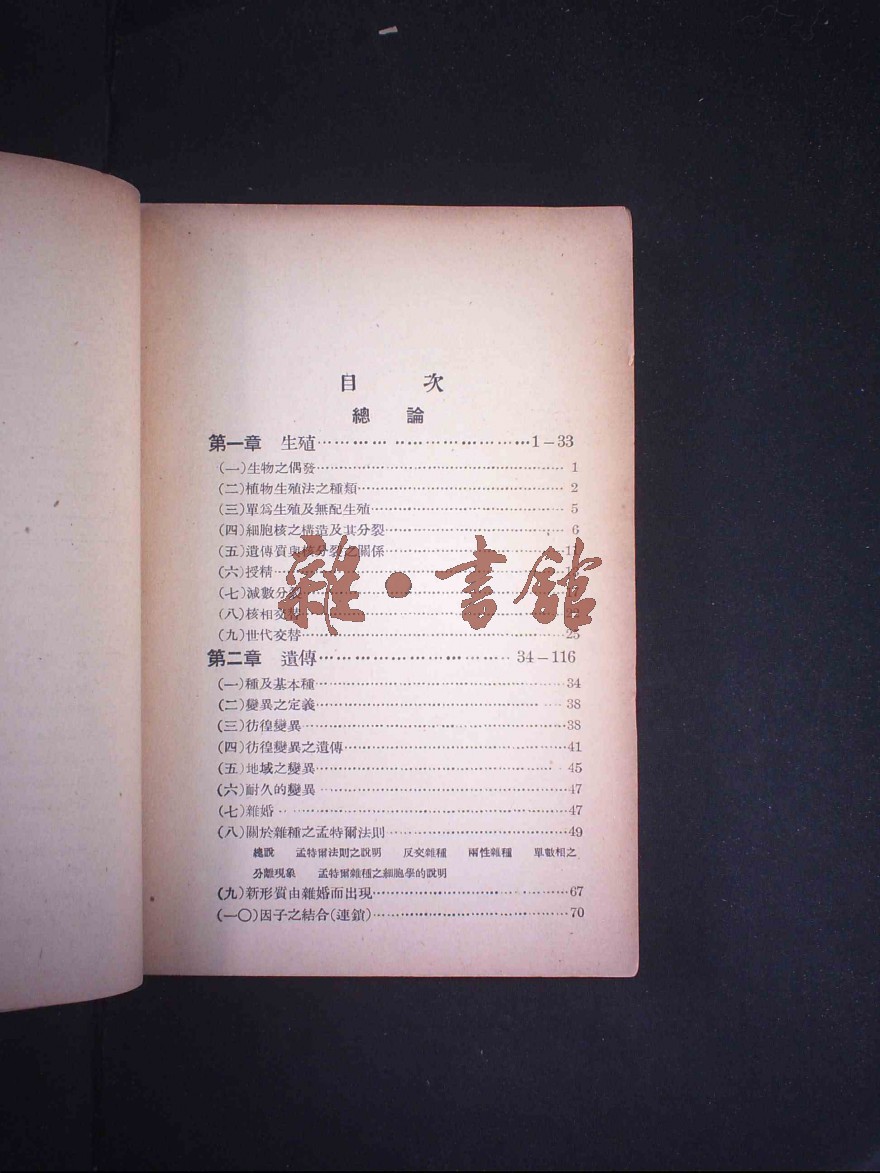 目 次
總 論
第一章 生殖……………………………1-33
(一)生物之偶發……………………………1
(二)植物生殖法之種類……………………………2
(三)單爲生殖及無配生殖……………………………5
(四)細胞核之構造及其分裂……………………………6
(五)遺傳質與核分裂之關係……………………………11
(六)授精……………………………
(七)減數分裂……………………………
(八)核相交替……………………………
(九)世代交替……………………………25
雜·書館
第二章 遺傳……………………………34-116
(一)種及基本種……………………………34
(二)變異之定義……………………………38
(三)彷徨變異……………………………38
(四)彷徨變異之遺傳……………………………41
(五)地域之變異……………………………45
(六)耐久的變異……………………………47
(七)雜婚……………………………47
(八)關於雜種之孟特爾法則……………………………49
總說 孟特爾法則之說明 反交雜種 兩性雜種 單數相之
分離現象 孟特爾雜種之細胞學的說明
(九)新形質由雜婚而出現……………………………67
(一〇)因子之結合(連鎖)……………………………70